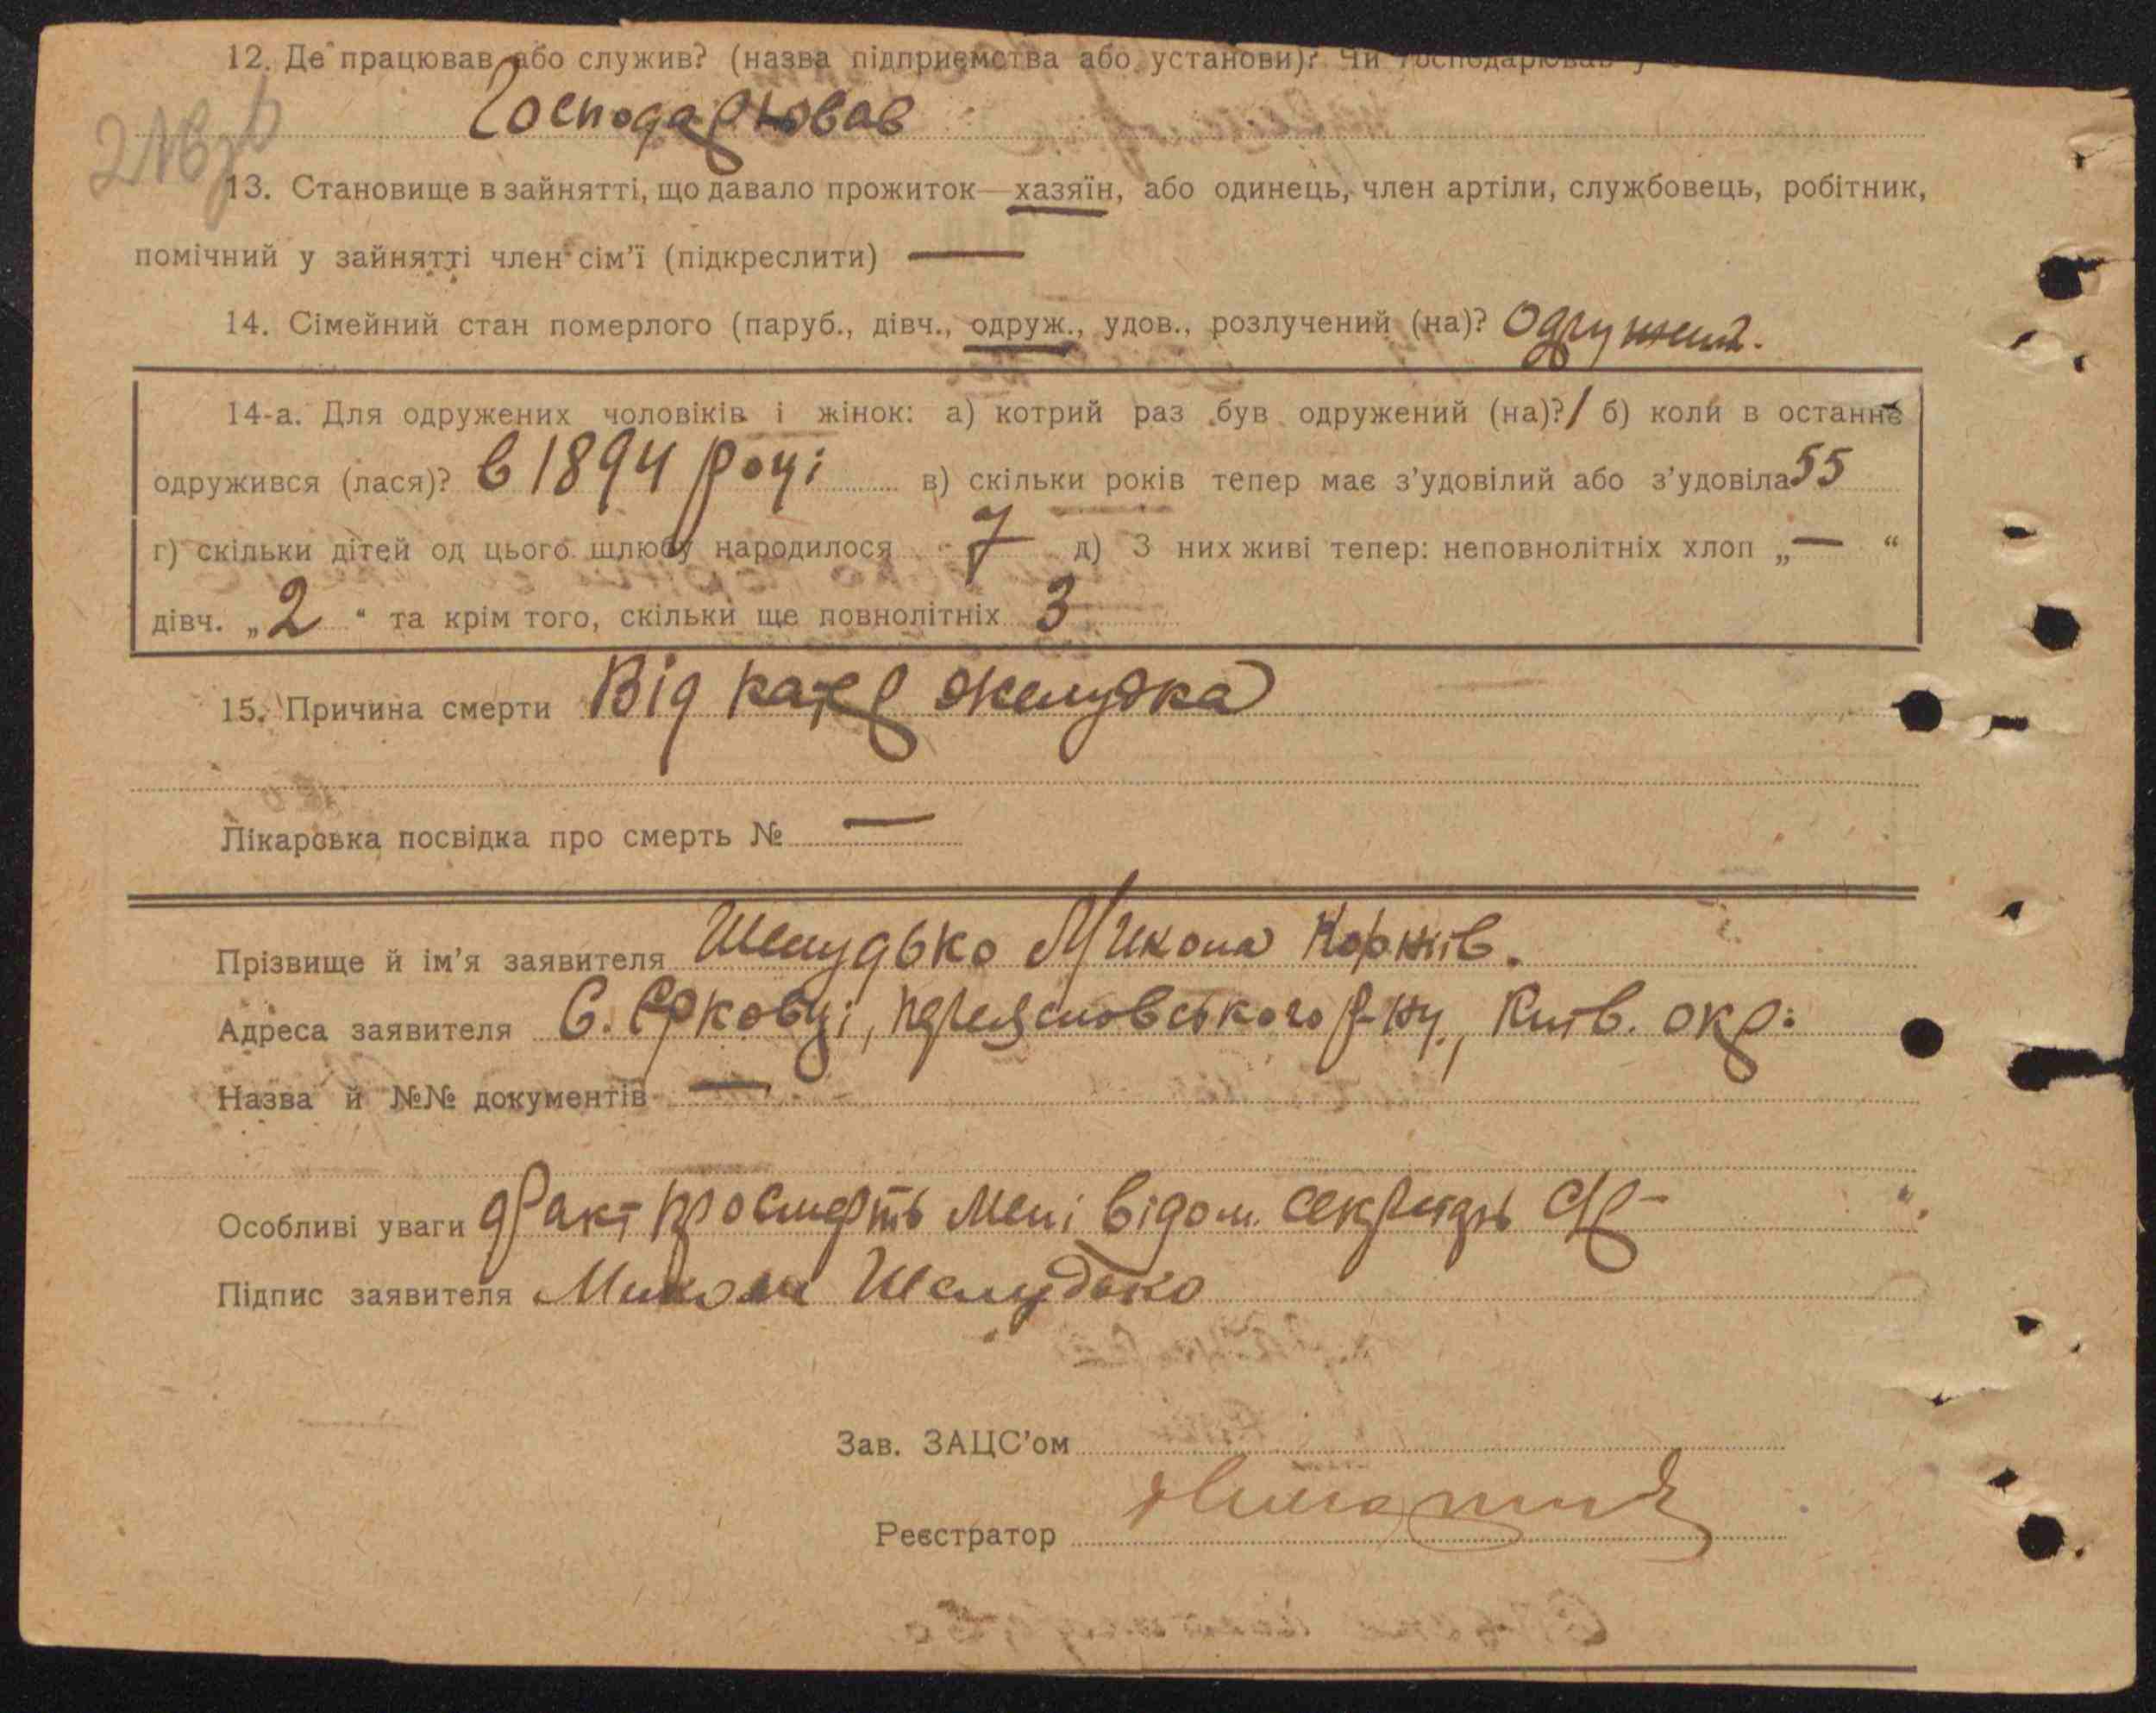 12. Де працював або служив? (назва підприємства або установи)? Чи господарював у
Господарював
13. Становище в зайнятті, що давало прожиток—хазяїн, або одинець, член артіли, службовець, робітник,
помічний у зайнятті член сім'ї (підкреслити) —
14. Сімейний стан померлого (паруб., дівч., одруж., удов., розлучений (на)? Одружений.
14-а. Для одружених чоловіків і жінок: а) котрий раз був одружений (на)? 1 б) коли в останнє
одружився (лася)? в 1894 році в) скільки років тепер має з'удовілий або з'удовіла 55
г) скільки дітей од цього шлюбу народилося 7 д) З них живі тепер: неповнолітніх хлоп „—“
дівч. „2“ та крім того, скільки ще повнолітніх 3
15. Причина смерти Від катар желудка
Лікарська посвідка про смерть № —
Прізвище й ім'я заявителя Шелудько Микола
Адреса заявителя С. Єрковці, Переяславського р-ну, Київ. окр.
Назва й №№ документів —
Особливі уваги Факт про смерть мені відом. секретарь
Підпис заявителя Микола Шелудько
Зав. ЗАЦС'ом
Реєстратор